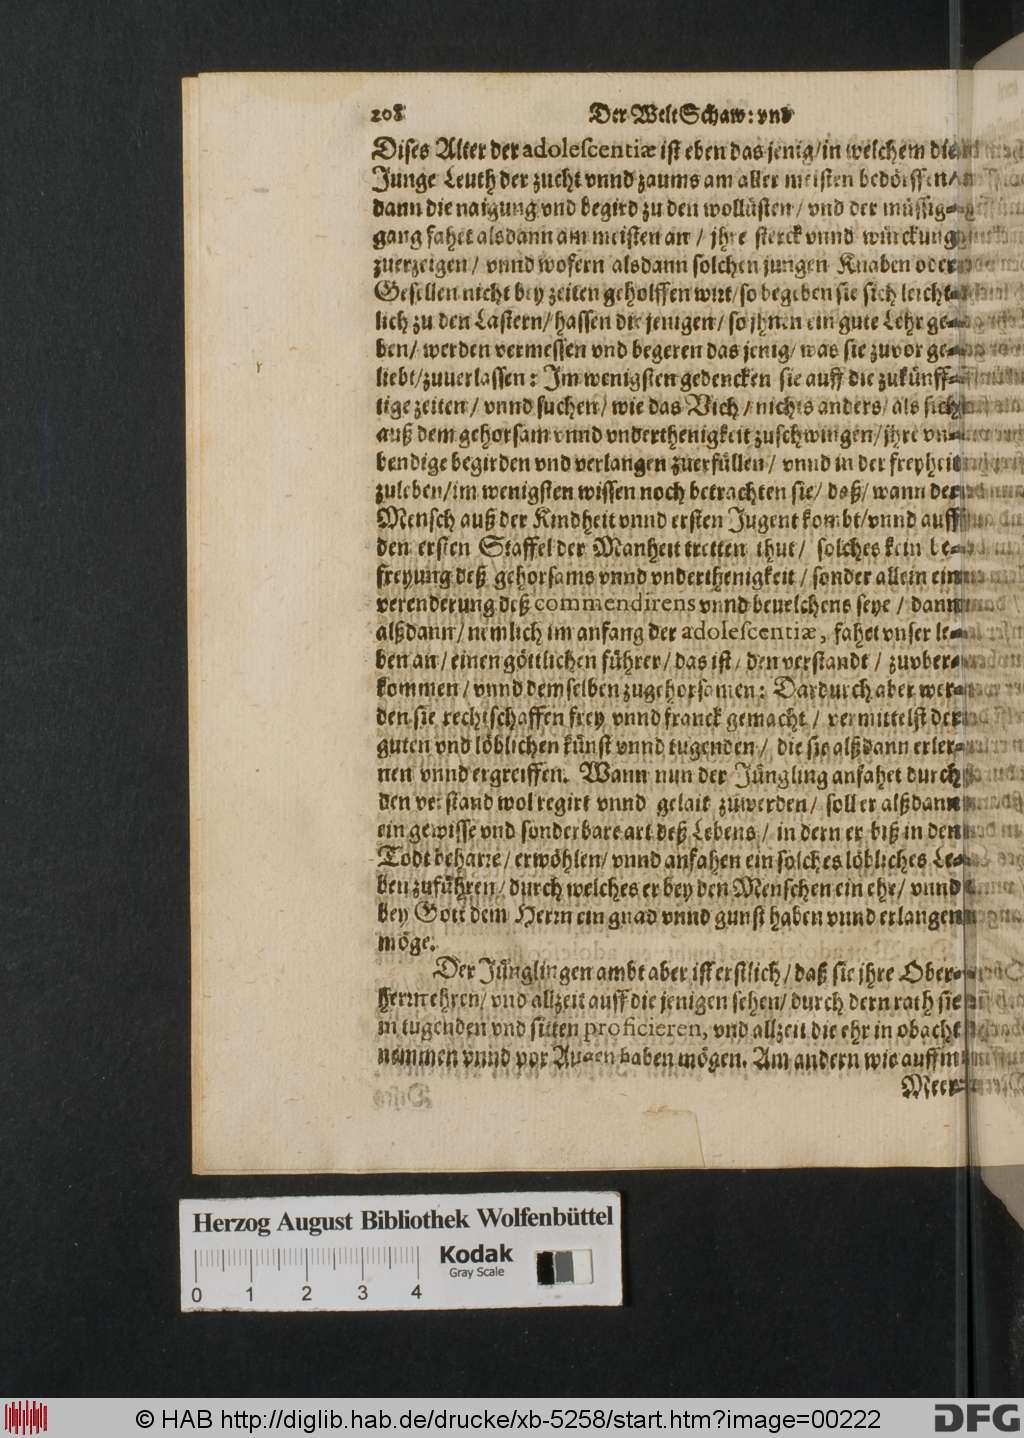 208 Der Welt Schaw: vnd
Dises Alter der adolescentiæ ist eben das jenig/ in welchem die
Junge Leuth der zucht vnnd zaums am aller meisten bedörffen/
dann die naigung vnd begird zu den wollüsten/ vnd der müssig-
gang fahet alsdann am meisten an/ jhre sterck vnnd würckung
zuerzeigen/ vnnd wofern alsdann solchen jungen Knaben oder
Gesellen nicht bey zeiten geholffen wirt/ so begeben sie sich leicht-
lich zu den Lastern/ hassen die jenigen/ so jhnen ein gute Lehr ge-
ben/ werden vermessen vnd begeren das jenig/ was sie zuvor ge-
liebt/ zuuerlassen: Im wenigsten gedencken sie auff die zukünff-
tige zeiten/ vnnd suchen/ wie das Vich/ nichts anders/ als sich
auß dem gehorsam vnnd vnderthenigkeit zuschwingen/ jhre vn-
bendige begirden vnd verlangen zuerfüllen/ vnnd in der freyheit
zuleben/ im wenigsten wissen noch betrachten sie/ daß/ wann der
Mensch auß der Kindheit vnnd ersten Jugent kombt/ vnnd auff
den ersten Staffel der Manheit tretten thut/ solches kein be-
freyung deß gehorsams vnnd vnderthenigkeit/ sonder allein ein
verenderung deß commendirens vnnd beuelchens seye/ dann
alßdann/ nemlich im anfang der adolescentiæ, fahet vnser le-
ben an/ einen göttlichen führer/ das ist/ den verstandt/ zuvber-
kommen/ vnnd demselben zugehorsamen: Dardurch aber wer-
den sie rechtschaffen frey vnnd franck gemacht/ vermittelst der
guten vnd löblichen künst vnnd tugenden/ die sie alßdann erler-
nen vnnd ergreiffen. Wann nun der Jüngling anfahet durch
den verstand wol regirt vnnd gelait zuwerden/ soll er alßdann
ein gewisse vnd sonderbare art deß Lebens/ in dern er biß in den
Todt beharre/ erwöhlen/ vnnd anfahen ein solches löbliches Le-
ben zuführen/ durch welches er bey den Menschen ein ehr/ vnnd
bey Gott dem Herrn ein gnad vnnd gunst haben vnnd erlangen
möge.
Der Jünglingen ambt aber ist erstlich/ daß sie jhre Ober-
herrn ehren/ vnd allzeit auff die jenigen sehen/ durch dern rath sie
in tugenden vnd sitten proficieren, vnd allzeit die ehr in obacht
nemmen vnnd vor Augen haben mögen. Am andern wie auffm
Meer
Herzog August Bibliothek Wolfenbüttel
Kodak
Gray Scale
0 1 2 3 4
© HAB http://diglib.hab.de/drucke/xb-5258/start.htm?image=00222
DFG